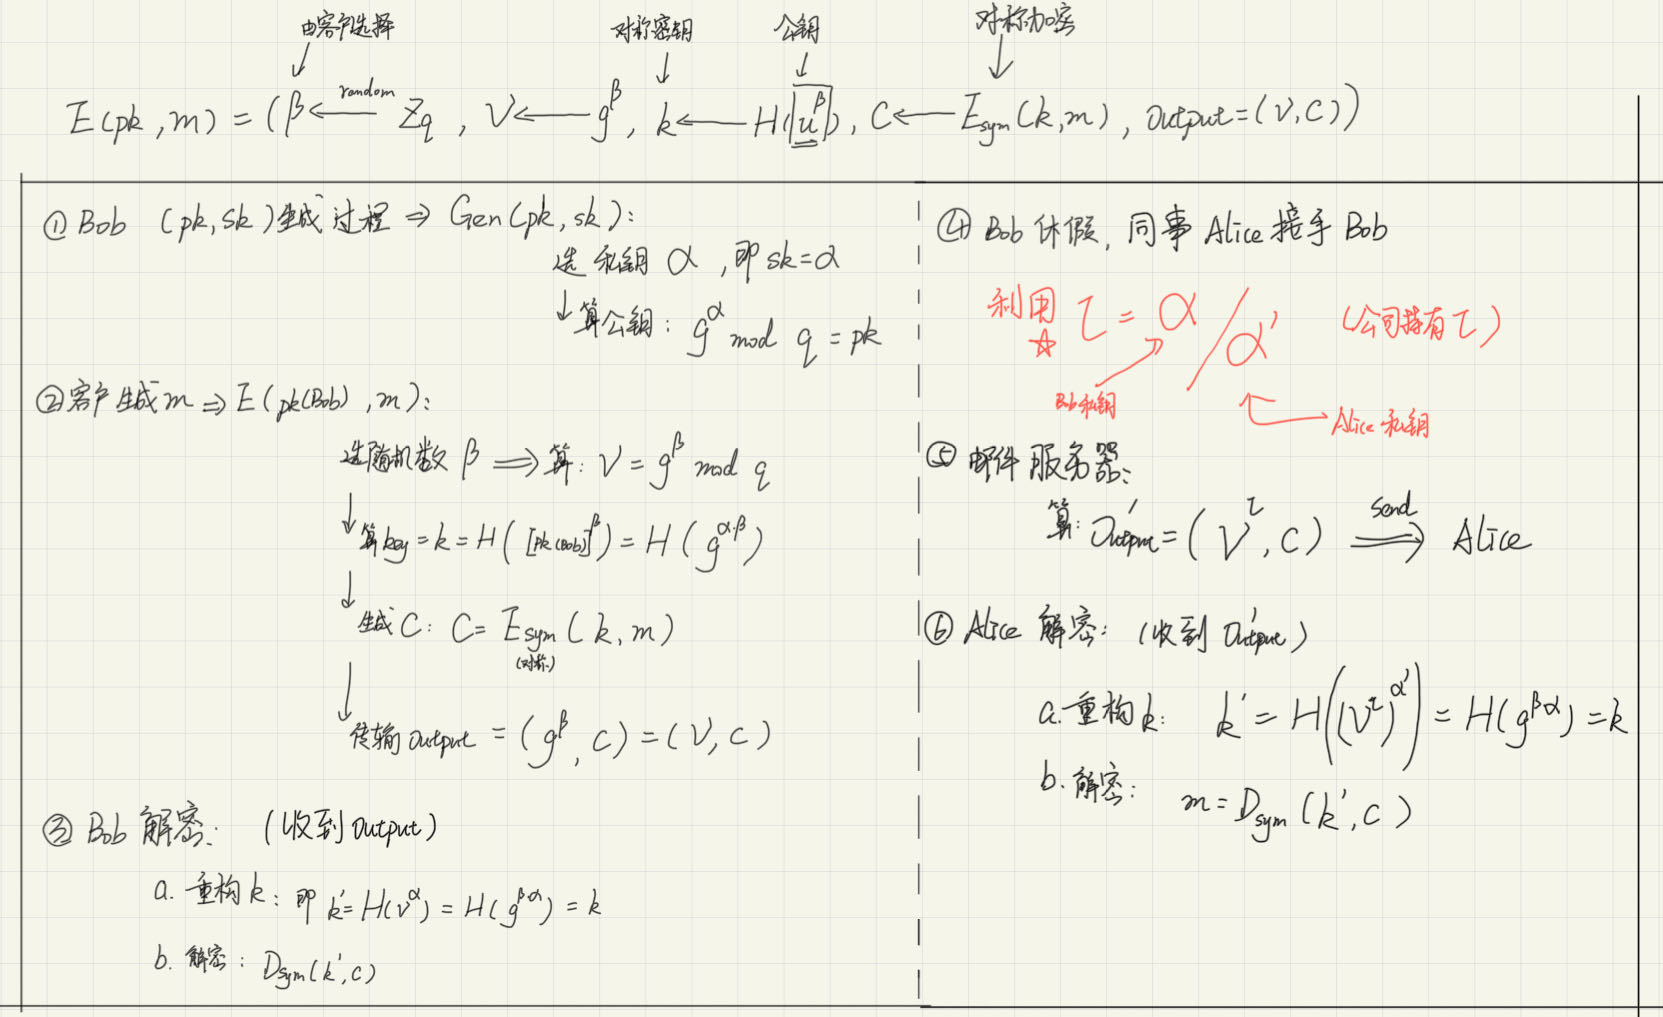 由客户选择 对称密钥 公钥 对称加密
E(pk,m) = (β ←random Zq , V ← g^β, k ← H(u^β), C ← Esym(k,m), Output=(V,C))
① Bob (pk,sk)生成过程 ⇒ Gen(pk,sk):
选 私钥 α ,即 sk=α
↓ 算公钥: g^α mod q = pk
② 客户生成m ⇒ E(pk(Bob),m):
选随机数 β ⟹ 算: V = g^β mod q
↓ 算key = k = H([pk(Bob)]^β) = H(g^α·β)
↓ 生成C: C = Esym(k,m)
(对称)
↓ 传输 output = (g^β, C) = (V, C)
③ Bob 解密: (收到 Output)
a. 重构k: 即 k'= H(V^α) = H(g^β·α) = k
b. 解密: Dsym(k',C)
④ Bob 休假, 同事 Alice 接手 Bob
利用 τ = α/α' (公司持有τ)
☆
Bob私钥
Alice 私钥
⑤ 邮件服务器:
算: Output' = (V^τ, C) send ⟹ Alice
⑥ Alice 解密: (收到 Output')
a. 重构k: k' = H((V^τ)^α') = H(g^βα) = k
b. 解密: m = Dsym(k',C)